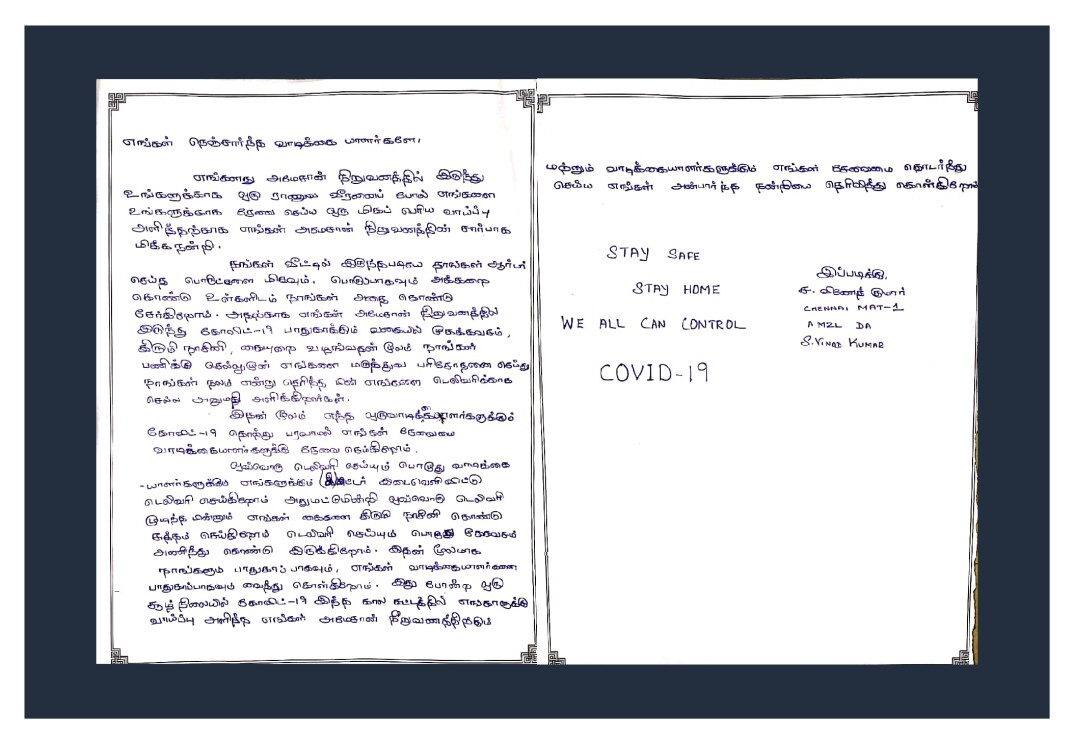 எங்கள் நெஞ்சார்ந்த வாடிக்கை யாளர்களே,
எங்களது அமேசான் நிறுவனத்தில் இருந்து
உங்களுக்காக ஒரு ராணுவ வீரனைப் போல் எங்களை
உங்களுக்காக சேவை செய்ய ஒரு மிகப் பெரிய வாய்ப்பு
அளித்தற்காக எங்கள் அமேசான் நிறுவனத்தின் சார்பாக
மிக்க நன்றி.
நீங்கள் வீட்டில் இருந்தபடியே தாங்கள் ஆர்டர்
செய்த பொருட்களை மிகவும், பொறுப்பாகவும் அக்கறை
கொண்டு உள்களிடம் நாங்கள் அதை கொண்டு
சேர்கிறோம். அதற்காக எங்கள் அமேசான் நிறுவனத்தில்
இருந்து கோவிட்-19 பாதுகாக்கும் வகையில் முகக்கவசம்,
கிருமி நாசினி, கையுறை வழங்குவதன் மூலம் நாங்கள்
பணிக்கு செல்லுமுன் எங்களை மருத்துவ பரிதோதனை செய்து
நாங்கள் நலம் என்று தெரிந்த பின் எங்களை டெலிவரிக்காக
செல்ல அனுமதி அளிக்கிறார்கள்.
இதன் மூலம் எந்த ஒருவாடிக்கையாளர்களுக்கும்
கோவிட்-19 தொற்று பரவாமல் எங்கள் சேவையை
வாடிக்கையாளர்களுக்கு சேவை செய்கிறோம்.
ஒவ்வொரு டெலிவரி செய்யும் பொழுது வாடிக்கை
-யாளர்களுக்கும் எங்களுக்கும் மீட்டர் இடைவெளிவிட்டு
டெலிவரி செய்கிறோம் அதுமட்டுமின்றி ஒவ்வொரு டெலிவரி
முடிந்த பின்னும் எங்கள் கைகளை கிருமி நாசினி கொண்டு
சுத்தம் செய்கிறோம் டெலிவரி செய்யும் பொழுது கவசம்
அணிந்து கொண்டு இருக்கிறோம். இதன் மூலமாக
நாங்களும் பாதுகாப்பாகவும், எங்கள் வாடிக்கையாளர்களை
பாதுகாப்பாகவும் வைத்து கொள்கிறோம். இது போன்ற ஒரு
சூழ்நிலையில் கோவிட்-19 இந்த கால கட்டத்தில் எங்களுக்கு
வாய்ப்பு அளித்த எங்கள் அமேசான் நிறுவனத்திற்கும்
மற்றும் வாடிக்கையாளர்களுக்கும் எங்கள் சேவையை தொடர்ந்து
செய்ய எங்கள் அன்பார்ந்த நன்றியை தெரிவித்து கொள்கிறோம்
STAY SAFE
STAY HOME
WE ALL CAN CONTROL
COVID-19
இப்படிக்கு,
ச. வினோத் குமார்
CHENNAI MAT-1
AMZL DA
S.VINOD KUMAR